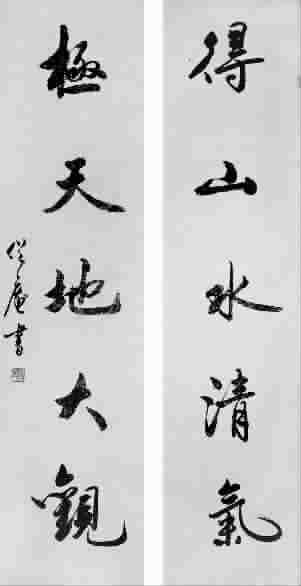 得山水清氣
極天地大觀
庵書